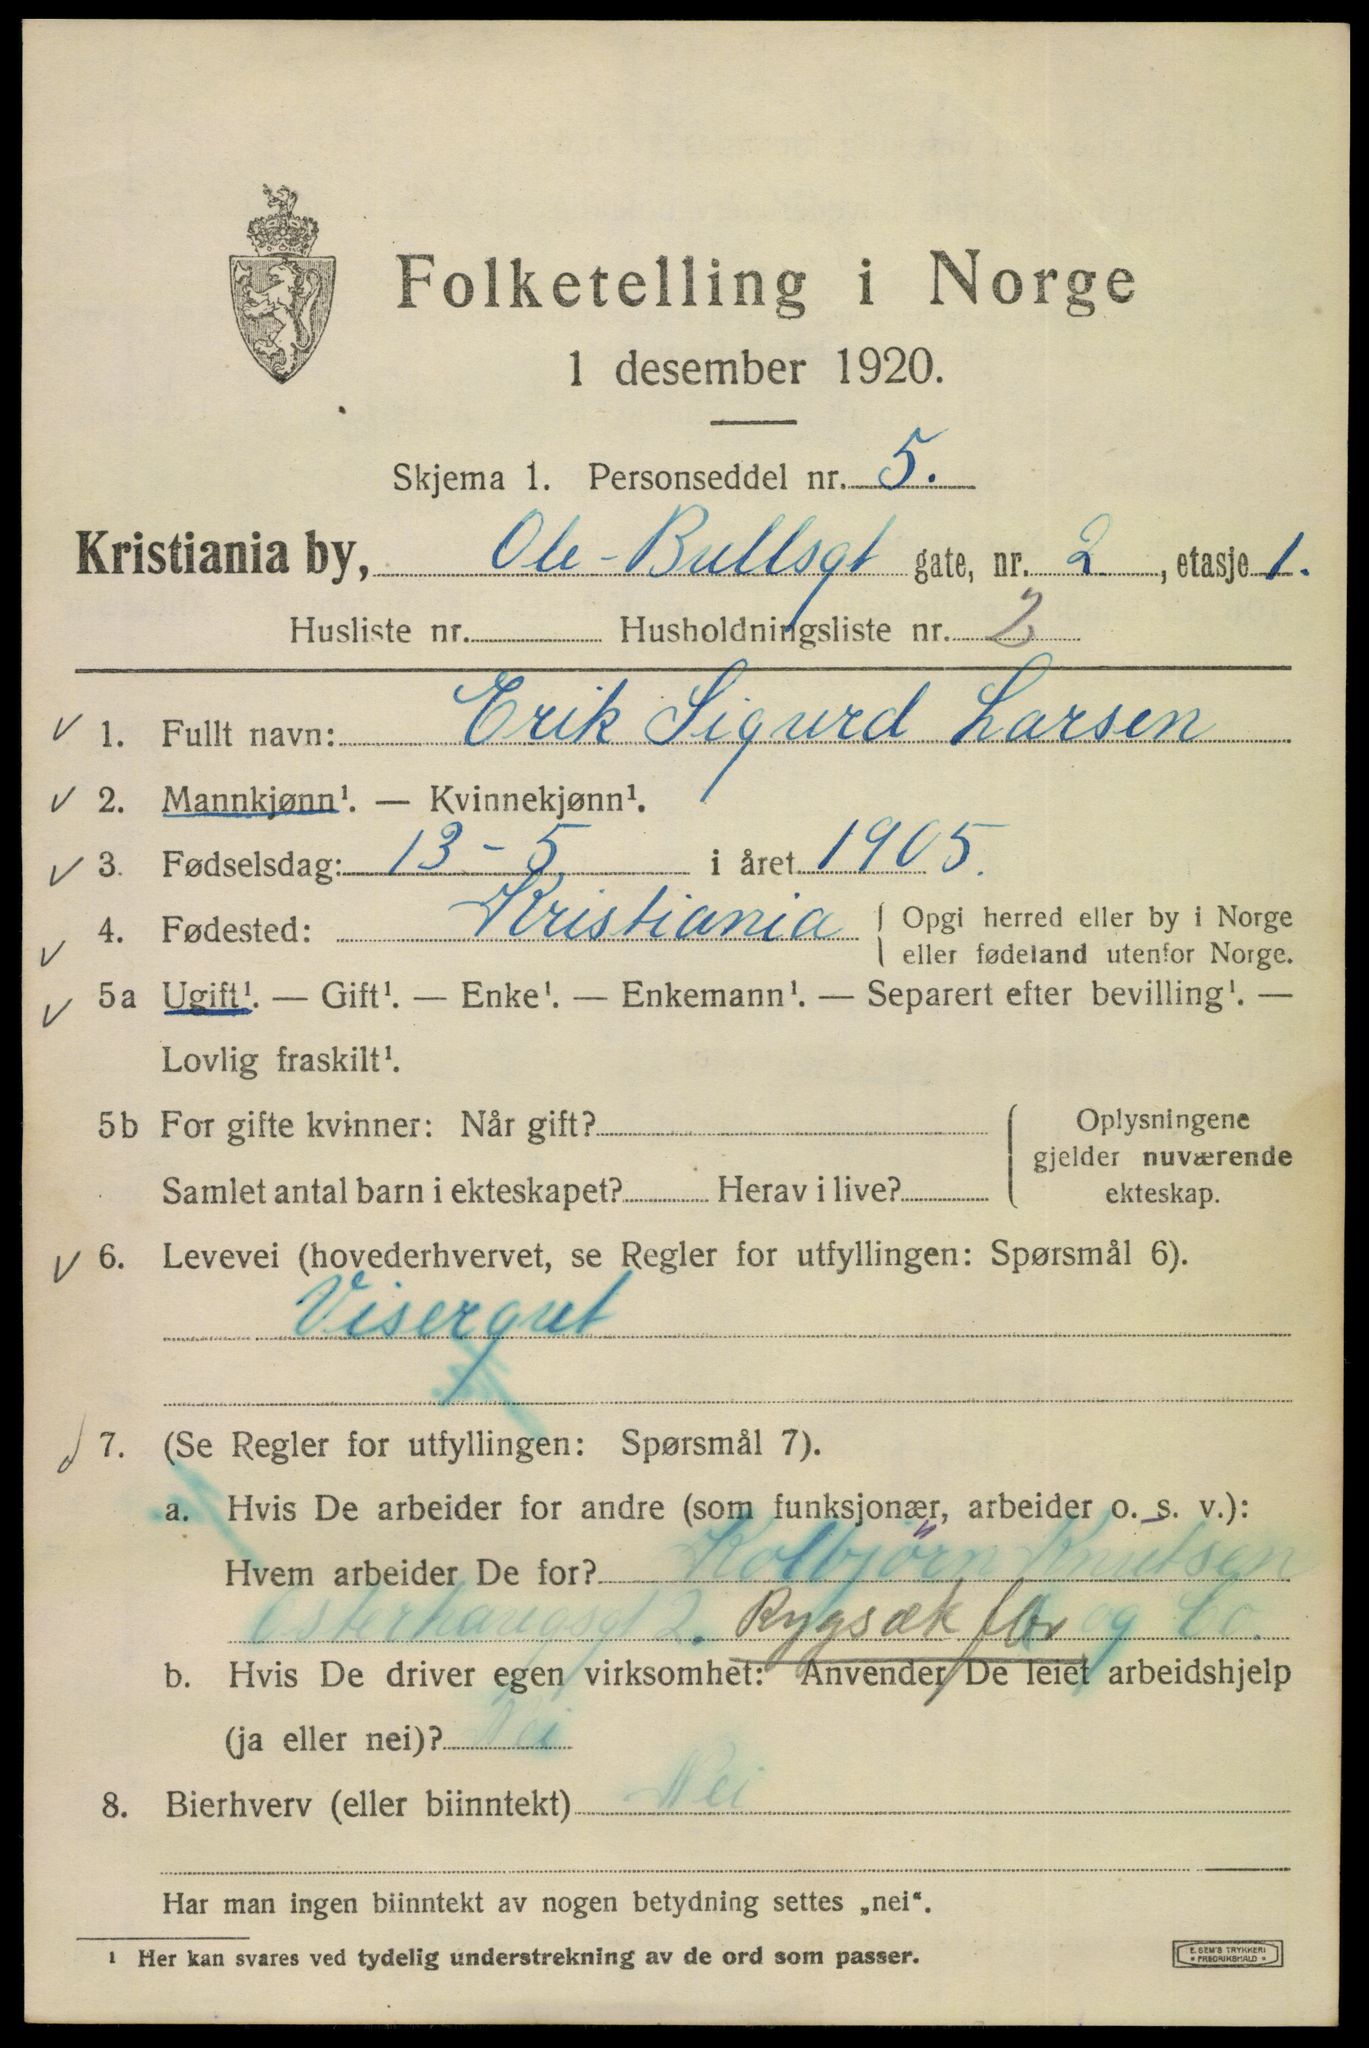 Folketelling i Norge
1 desember 1920.
Skjema 1. Personseddel nr. 5.
Kristiania by, Ole-Bullsgt gate, nr. 2, etasje 1.
Husliste nr. Husholdningsliste nr. 2
1. Fullt navn: Erik Sigurd Larsen
2. Mannkjønn¹. — Kvinnekjønn¹.
3. Fødselsdag: 13-5 i året 1905.
4. Fødested: Kristiania { Opgi herred eller by i Norge
eller fødeland utenfor Norge.
5a Ugift¹. — Gift¹. — Enke¹. — Enkemann¹. — Separert efter bevilling¹. —
Lovlig fraskilt¹.
5b For gifte kvinner: Når gift? { Oplysningene
gjelder nuværende
Samlet antal barn i ekteskapet? Herav i live? ekteskap.
6. Levevei (hovederhvervet, se Regler for utfyllingen: Spørsmål 6).
Visergut
7. (Se Regler for utfyllingen: Spørsmål 7).
a. Hvis De arbeider for andre (som funksjonær, arbeider o. s. v.):
Hvem arbeider De for? Kolbjörn Knutsen
Osterhausgt 2. Rygsæk fbr og Co.
b. Hvis De driver egen virksomhet: Anvender De leiet arbeidshjelp
(ja eller nei)? Nei
8. Bierhverv (eller biinntekt) Nei
Har man ingen biinntekt av nogen betydning settes „nei“.
¹ Her kan svares ved tydelig understrekning av de ord som passer.
E. SEM'S TRYKKERI
• FREDRIKSHALD •